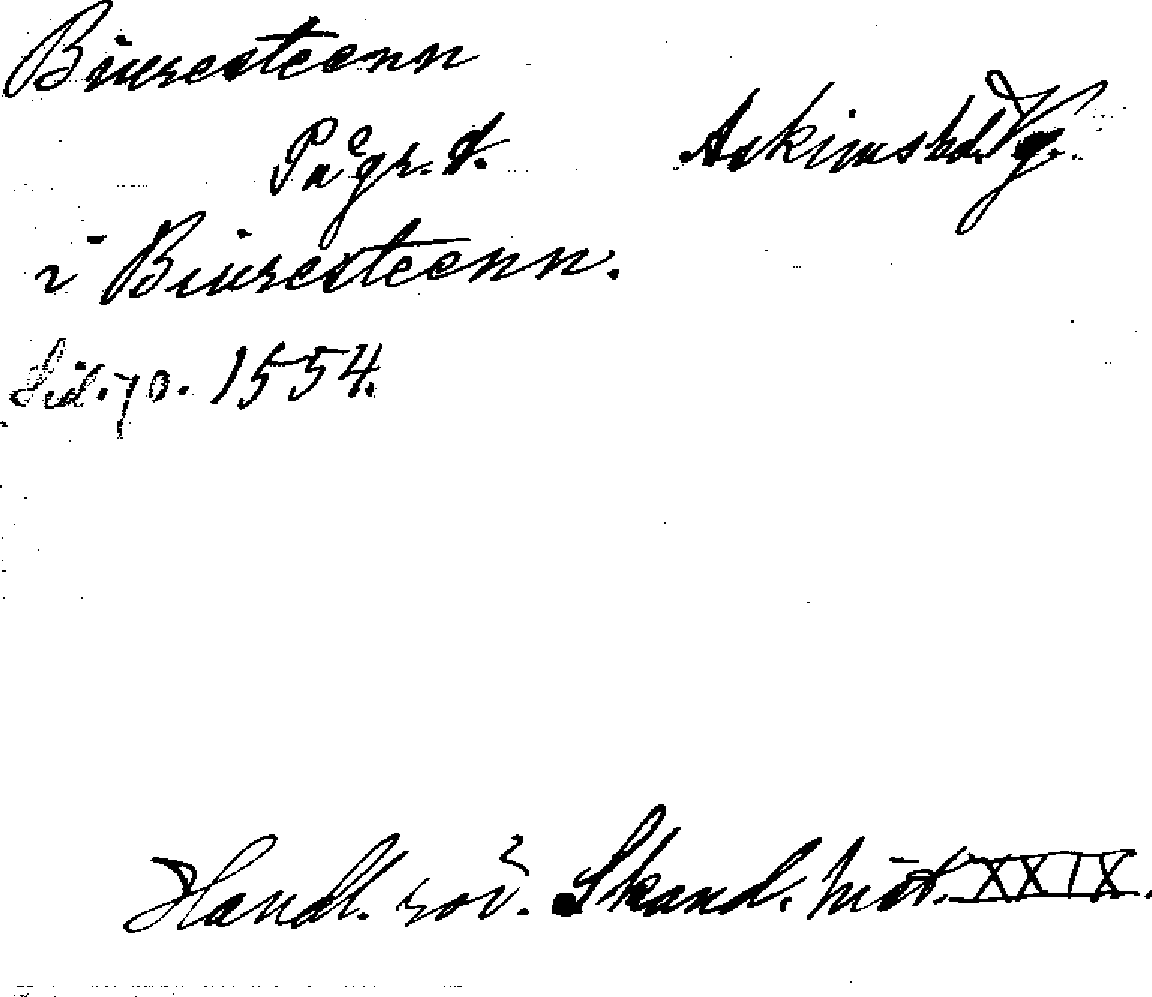 Biuresteenn
Pågr. d. Askims hd. Vg.
i Biuresteenn.
Sid. 70. 1554.
Handl. rör. Skand. hist. XXIX.